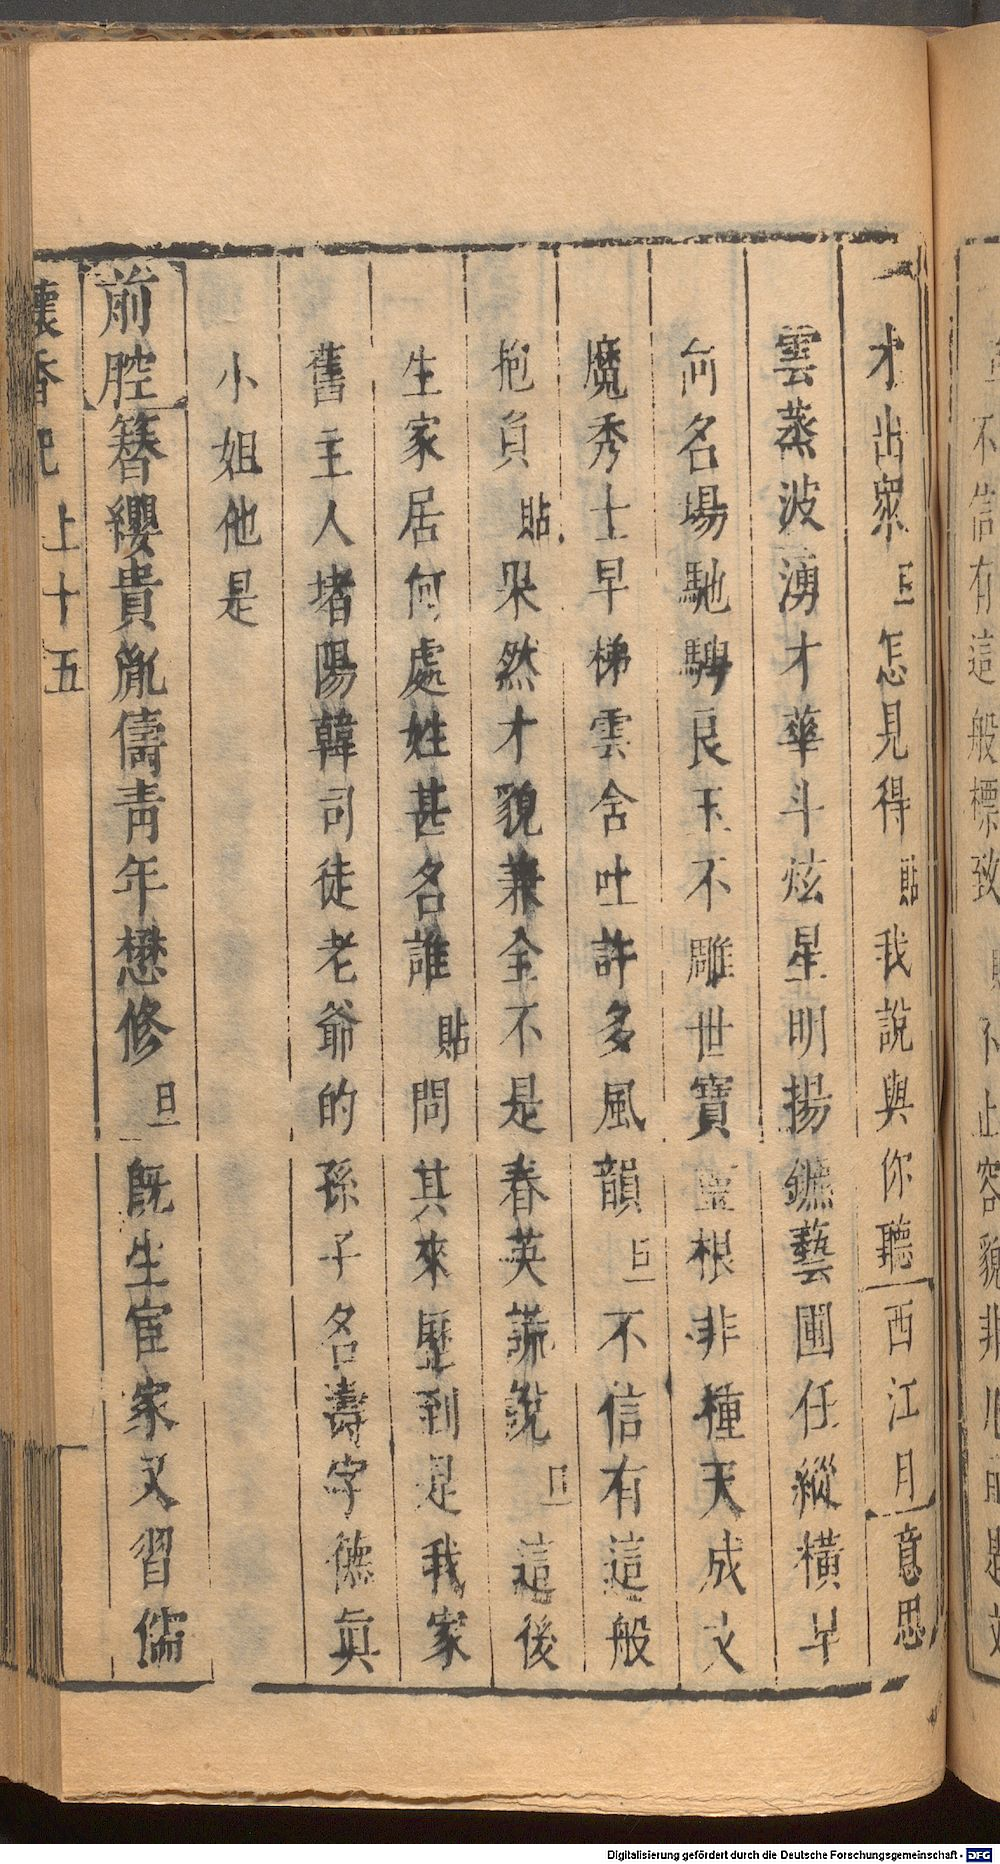 才出眾旦怎見得貼我說與你聽西江月意思
雲蒸波湧才華斗炫星明揚鑣藝圃任縱橫早
向名場馳騁良玉不雕世寶靈根非種天成文
魔秀士早梯雲舍吐許多風韻旦不信有這般
抱負貼果然才貌兼全不是春英謊說旦這後
生家居何處姓甚名誰貼問其來歷到是我家
舊主人堵陽韓司徒老爺的孫子名壽字德真
小姐他是
前腔簪纓貴胤儔青年懋修旦既生宦家又習儒
懷香記 上十五
不信有這般標致貼不止容貌非凡
Digitalisierung gefördert durch die Deutsche Forschungsgemeinschaft - DFG